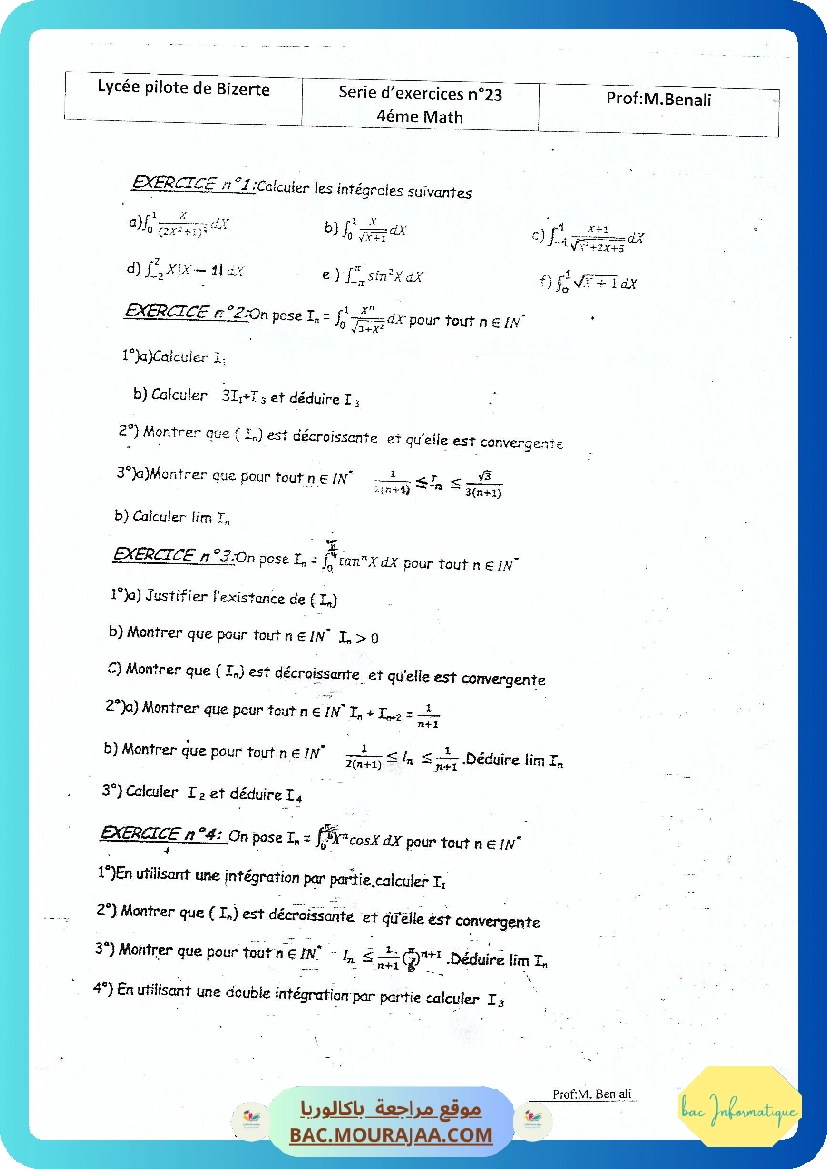 Lycée pilote de Bizerte
Serie d'exercices n°23
4éme Math
Prof:M.Benali
EXERCICE n°1:Calculer les intégrales suivantes
a)∫₀¹ X/(2X²+1)² dX b) ∫₀¹ X/√(X+1) dX c) ∫₋₁¹ (X+1)/√(X²+2X+5) dX
d) ∫₋₂² X|X − 1| dX e ) ∫₋π^π sin²X dX f) ∫₀¹ √(X + 1) dX
EXERCICE n°2:On pose Iₙ = ∫₀¹ Xⁿ/√(3+X²) dX pour tout n ∈ IN*
1°)a)Calculer I₁
b) Calculer 3I₁+I₃ et déduire I₃
2°) Montrer que ( Iₙ) est décroissante et qu'elle est convergente
3°)a)Montrer que pour tout n ∈ IN* 1/(2(n+1)) ≤ Iₙ ≤ √3/(3(n+1))
b) Calculer lim Iₙ
EXERCICE n°3:On pose Iₙ = ∫₀ tanⁿX dX pour tout n ∈ IN*
1°)a) Justifier l'existance de ( Iₙ)
b) Montrer que pour tout n ∈ IN* Iₙ > 0
C) Montrer que ( Iₙ) est décroissante et qu'elle est convergente
2°)a) Montrer que pour tout n ∈ IN* Iₙ + Iₙ₊₂ = 1/(n+1)
b) Montrer que pour tout n ∈ IN* 1/(2(n+1)) ≤ Iₙ ≤ 1/(n+1) .Déduire lim Iₙ
3°) Calculer I₂ et déduire I₄
EXERCICE n°4: On pose Iₙ = ∫₀ Xⁿcos X dX pour tout n ∈ IN*
1°)En utilisant une intégration par partie,calculer I₁
2°) Montrer que ( Iₙ) est décroissante et qu'elle est convergente
3°) Montrer que pour tout n ∈ IN* Iₙ ≤ 1/(n+1) ( )ⁿ⁺¹ .Déduire lim Iₙ
4°) En utilisant une double intégration par partie calculer I₃
Prof:M. Ben ali
موقع مراجعة باكالوريا
BAC.MOURAJAA.COM
bac Informatique